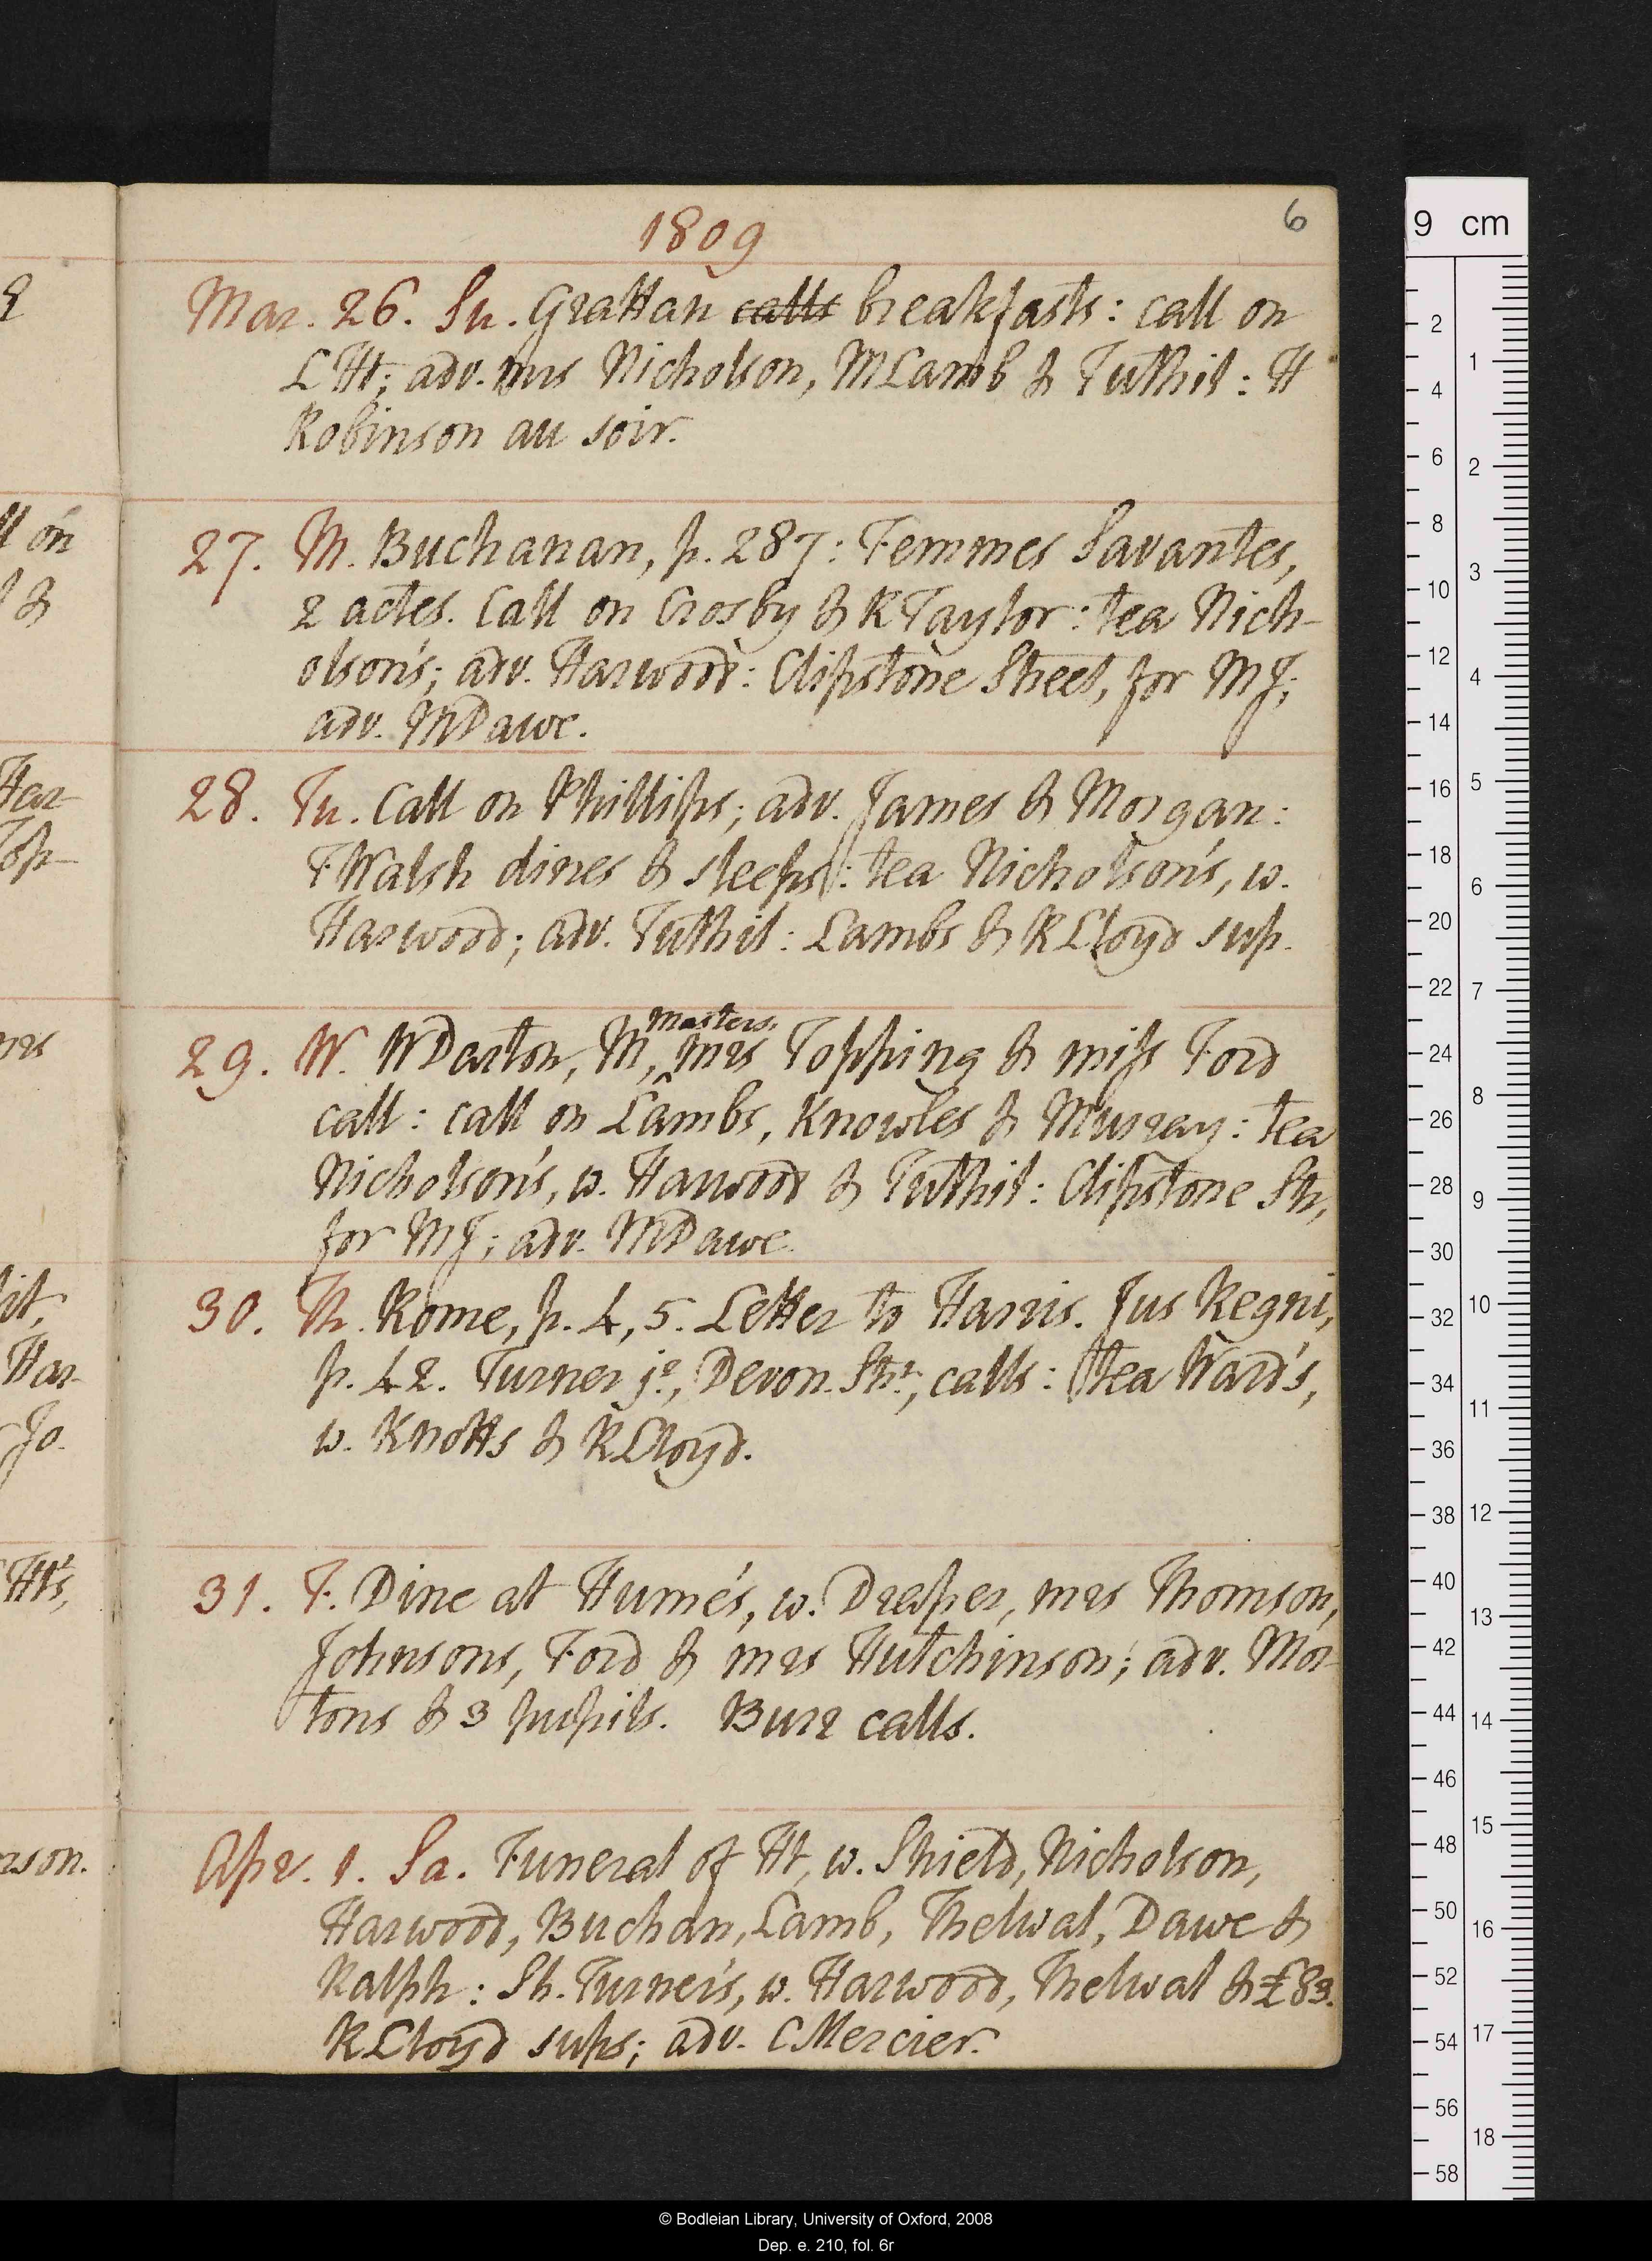 1809
6
Mar. 26. Su. Grattan calls breakfasts: call on
L Ht; adv. mrs Nicholson, M Lamb & Tuthil: H
Robinson au soir.
27. M. Buchanan, p. 287: Femmes Savantes,
2 actes. Call on Crosby & R Taylor: tea Nich-
olson's; adv. Harwood: Clipstone Street, for MJ;
adv. M Dawe.
28. Tu. Call on Phillips; adv. James & Morgan:
T Walsh dines & sleeps: tea Nicholson's, w.
Harwood; adv. Tuthil: Lambs & R Lloyd sup.
Masters,
29. W. W Darton, M, mrs Topping & miss Ford
call: call on Lambs, Knowles & Murray: tea
Nicholson's, w. Harwood & Tuthil: Clipstone St,
for MJ; adv. M Dawe.
30. Th. Rome, p. 4, 5. Letter to Harris. Jus Regni,
p. 42. Turner jr, Devon. Str, calls: tea Ward's,
w. Knotts & R Lloyd.
31. F. Dine at Hume's, w. Dreaper, mrs Thomson,
Johnsons, Ford & mrs Hutchinson; adv. Mor-
tons & 3 pupils. Burr calls.
Apr. 1. Sa. Funeral of Ht, w. Shield, Nicholson,
Harwood, Buchan, Lamb, Thelwal, Dawe &
Ralph: Sh. Turner's, w. Harwood, Thelwal & £83.
R Lloyd sups; adv. C Mercier.
ll on
l &
Har-
Top-
mrs
Har-
Jo.
Ht's,
nson.
9 cm
2
4
6
8
10
12
14
16
18
20
22
24
26
28
30
32
34
36
38
40
42
44
46
48
50
52
54
56
58
1
2
3
4
5
6
7
8
9
10
11
12
13
14
15
16
17
18
© Bodleian Library, University of Oxford, 2008
Dep. e. 210, fol. 6r